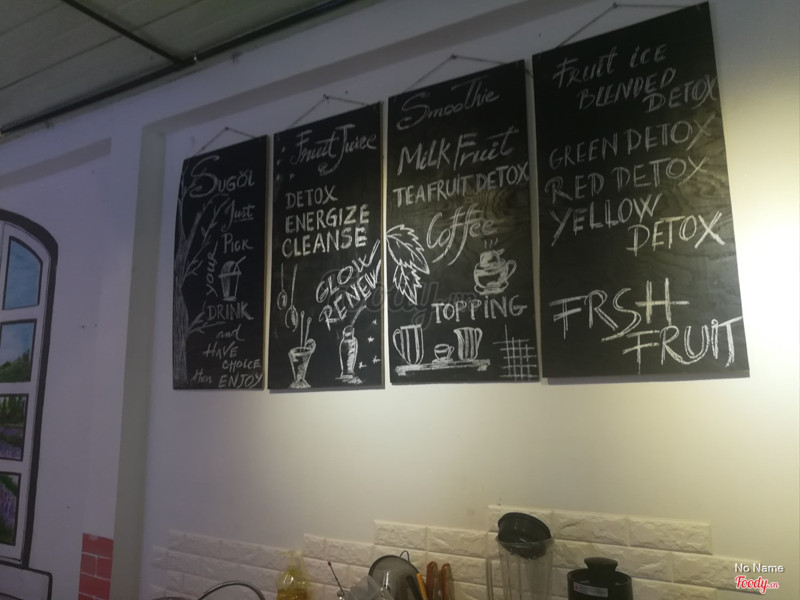 SUGÖL
Just
PICK
YOUR
DRINK
and
HAVE
CHOICE
then ENJOY
Fruit Juice
DETOX
ENERGIZE
CLEANSE
GLOW
RENEW
Smoothie
MILK FRUIT
TEAFRUIT DETOX
Coffee
TOPPING
FRUIT ICE
BLENDED
DETOX
GREEN DETOX
RED DETOX
YELLOW
DETOX
FRSH
FRUIT
Foody.vn
No Name
Foody.vn